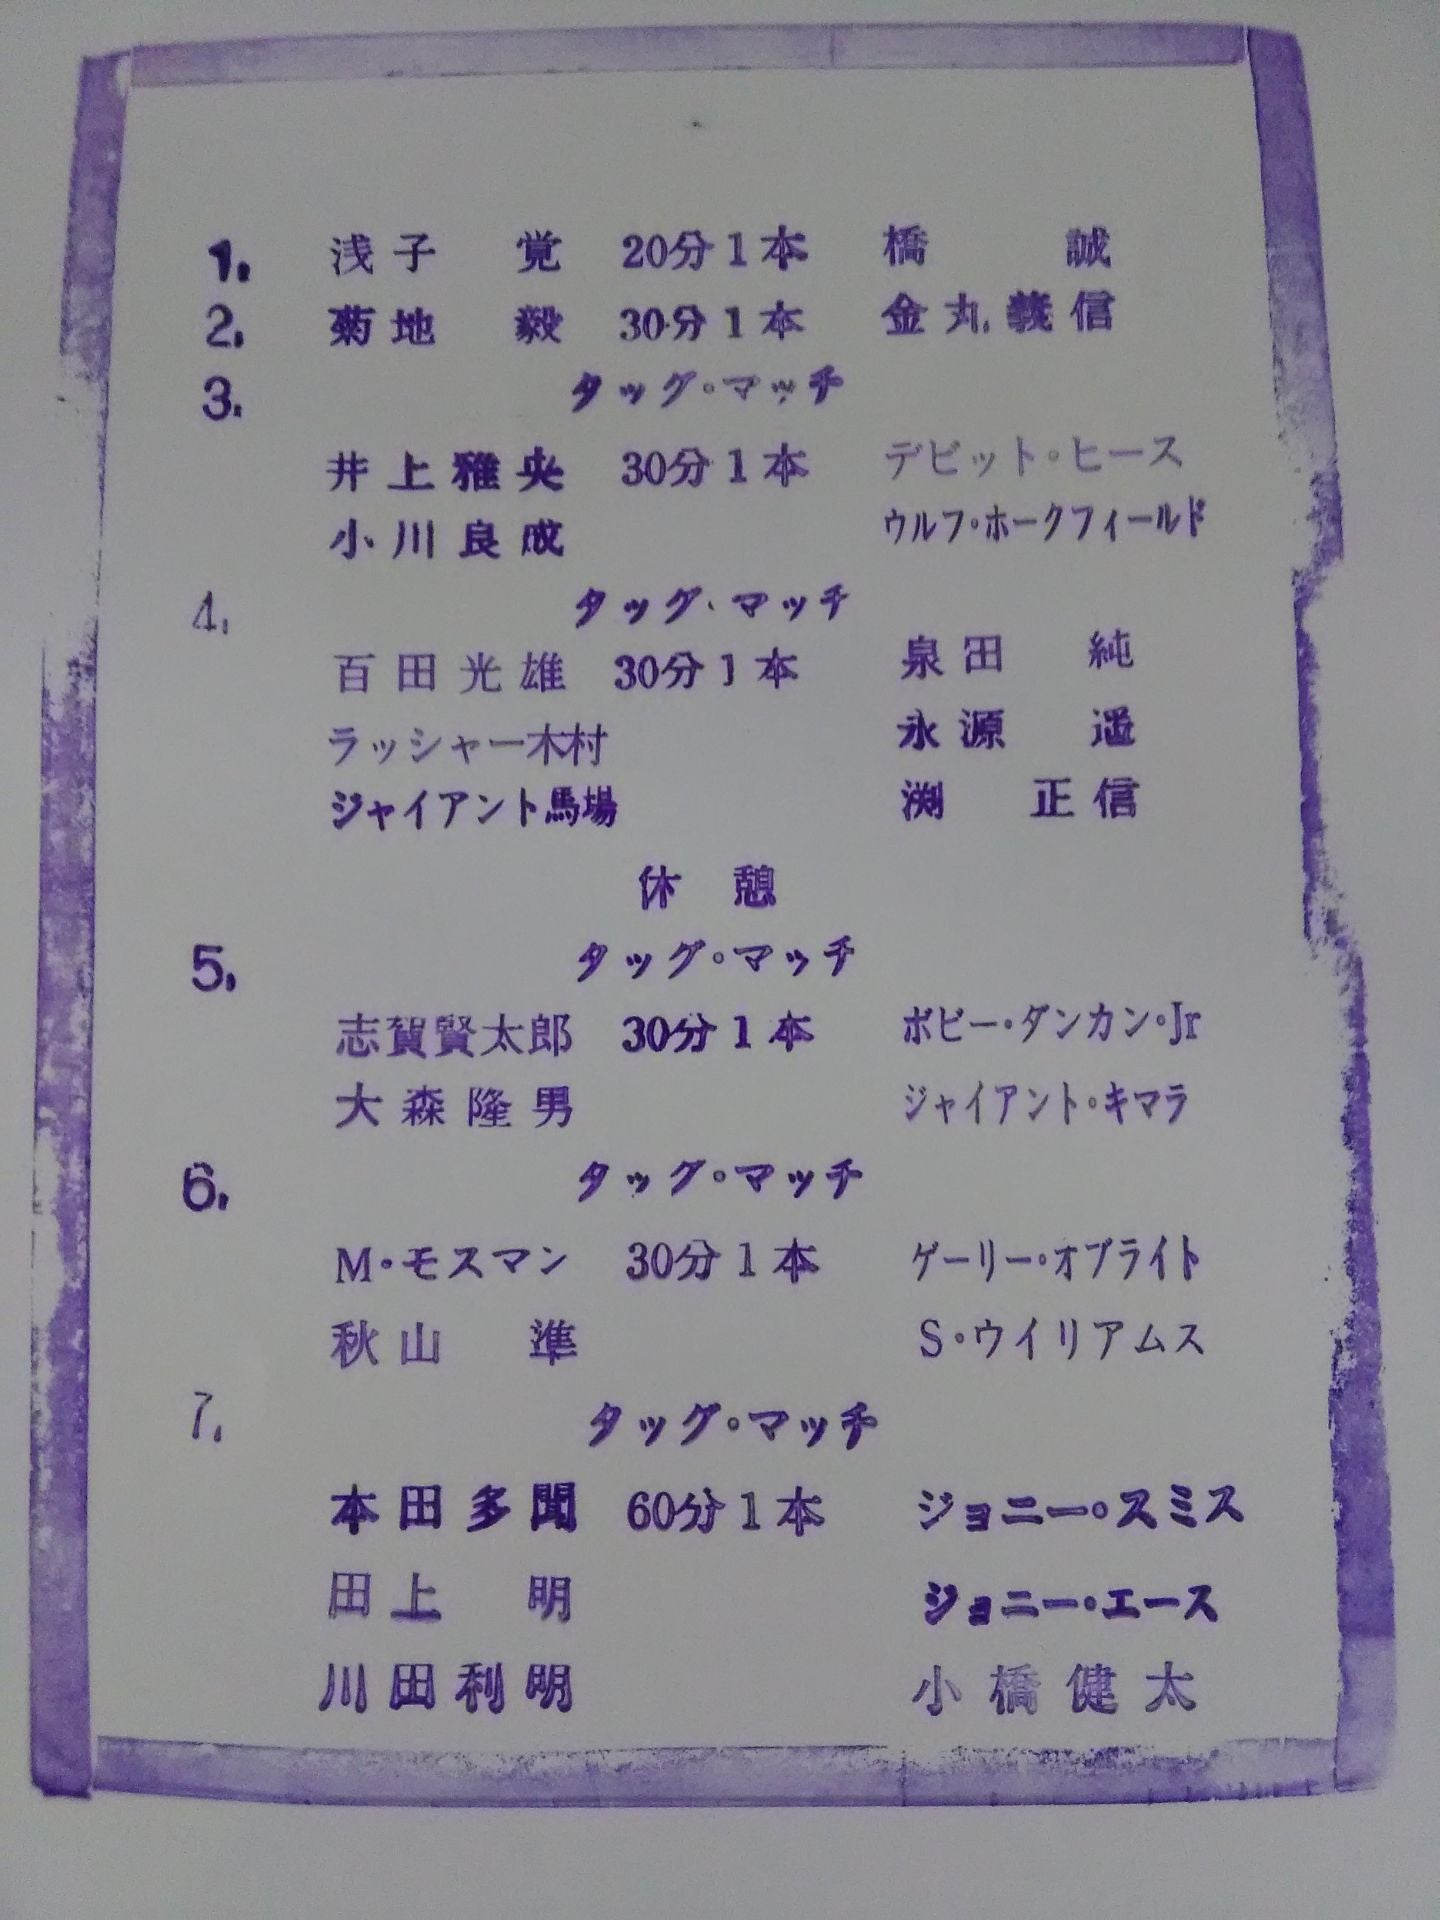 1. 浅子 覚 20分1本 橋 誠
2. 菊地 毅 30分1本 金丸義信
3. タッグ・マッチ
井上雅央 30分1本 デビット・ヒース
小川良成 ウルフ・ホークフィールド
4. タッグ・マッチ
百田光雄 30分1本 泉田 純
ラッシャー木村 永源 遥
ジャイアント馬場 渕 正信
休憩
5. タッグ・マッチ
志賀賢太郎 30分1本 ボビー・ダンカン・Jr
大森隆男 ジャイアント・キマラ
6. タッグ・マッチ
M・モスマン 30分1本 ゲーリー・オブライト
秋山 準 S・ウイリアムス
7. タッグ・マッチ
本田多聞 60分1本 ジョニー・スミス
田上 明 ジョニー・エース
川田利明 小橋健太